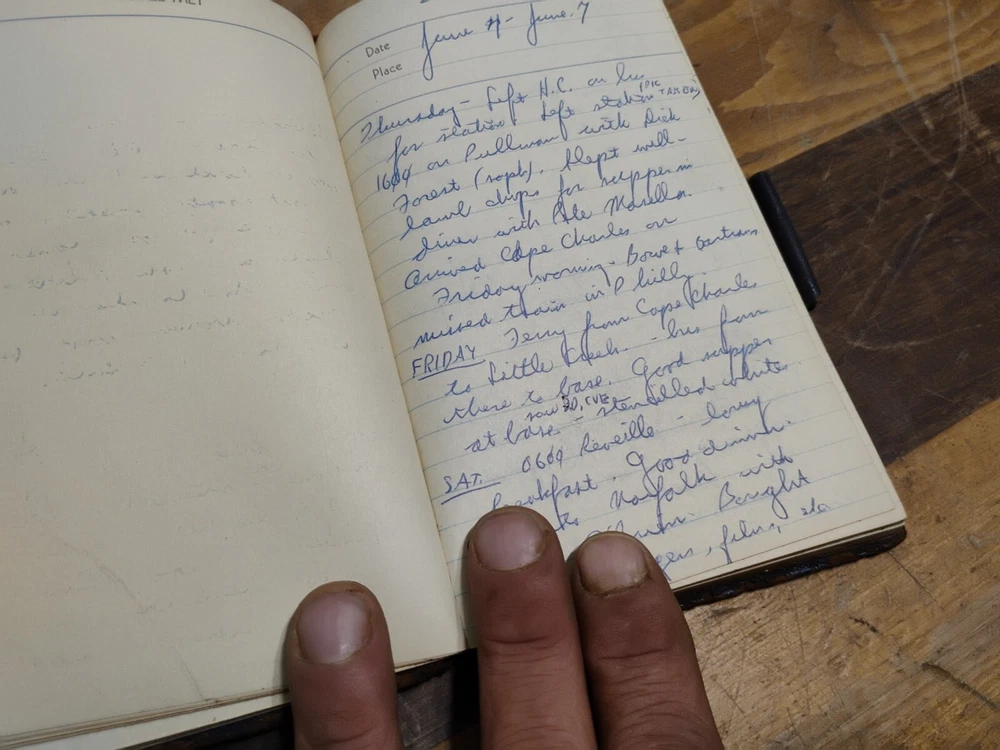 Date June 4 - June 7
Place
Thursday - Left H.C. on bus
for station. Left station (PIC TAKEN)
1600 on Pullman with Dick
Forest (soph). Slept well -
lamb chops for supper in
diner with Pete
Arrived Cape Charles on
Friday morning - Bowe &
missed train in Philly.
FRIDAY Ferry from Cape Charles
to Little Creek. - bus from
there to base. Good supper
at base - stencilled whites
saw
SAT. 0600 Reveille - lousy
breakfast. Good dinner.
to Norfolk with
Bought
films, etc